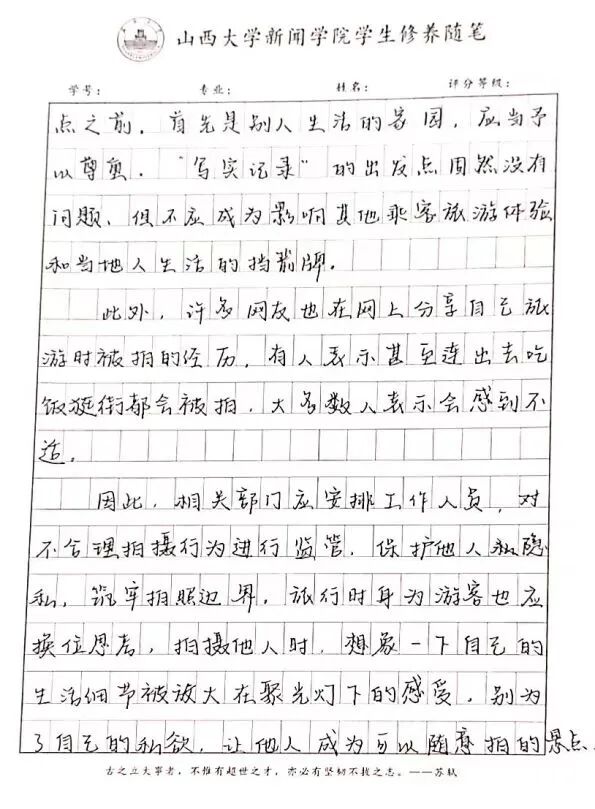 山西大学新闻学院学生修养随笔
学号: 专业: 姓名: 评分等级:
点之前，首先是别人生活的家园，应当予
以尊重。“写实记录”的出发点固然没有
问题、但不应成为影响其他乘客旅游体验
和当地人生活的挡箭牌。
此外，许多网友也在网上分享自己旅
游时被拍的经历，有人表示甚至连出去吃
饭逛街都会被拍，大多数人表示会感到不
适。
因此，相关部门应安排工作人员，对
不合理拍摄行为进行监管，保护他人私隐
私，筑牢拍照边界，旅行时身为游客也应
换位思考，拍摄他人时，想象一下自己的
生活细节被放大在聚光灯下的感受，别为
了自己的私欲，让他人成为可以随意拍的景点。
古之立大事者，不惟有超世之才，亦必有坚韧不拔之志。——苏轼